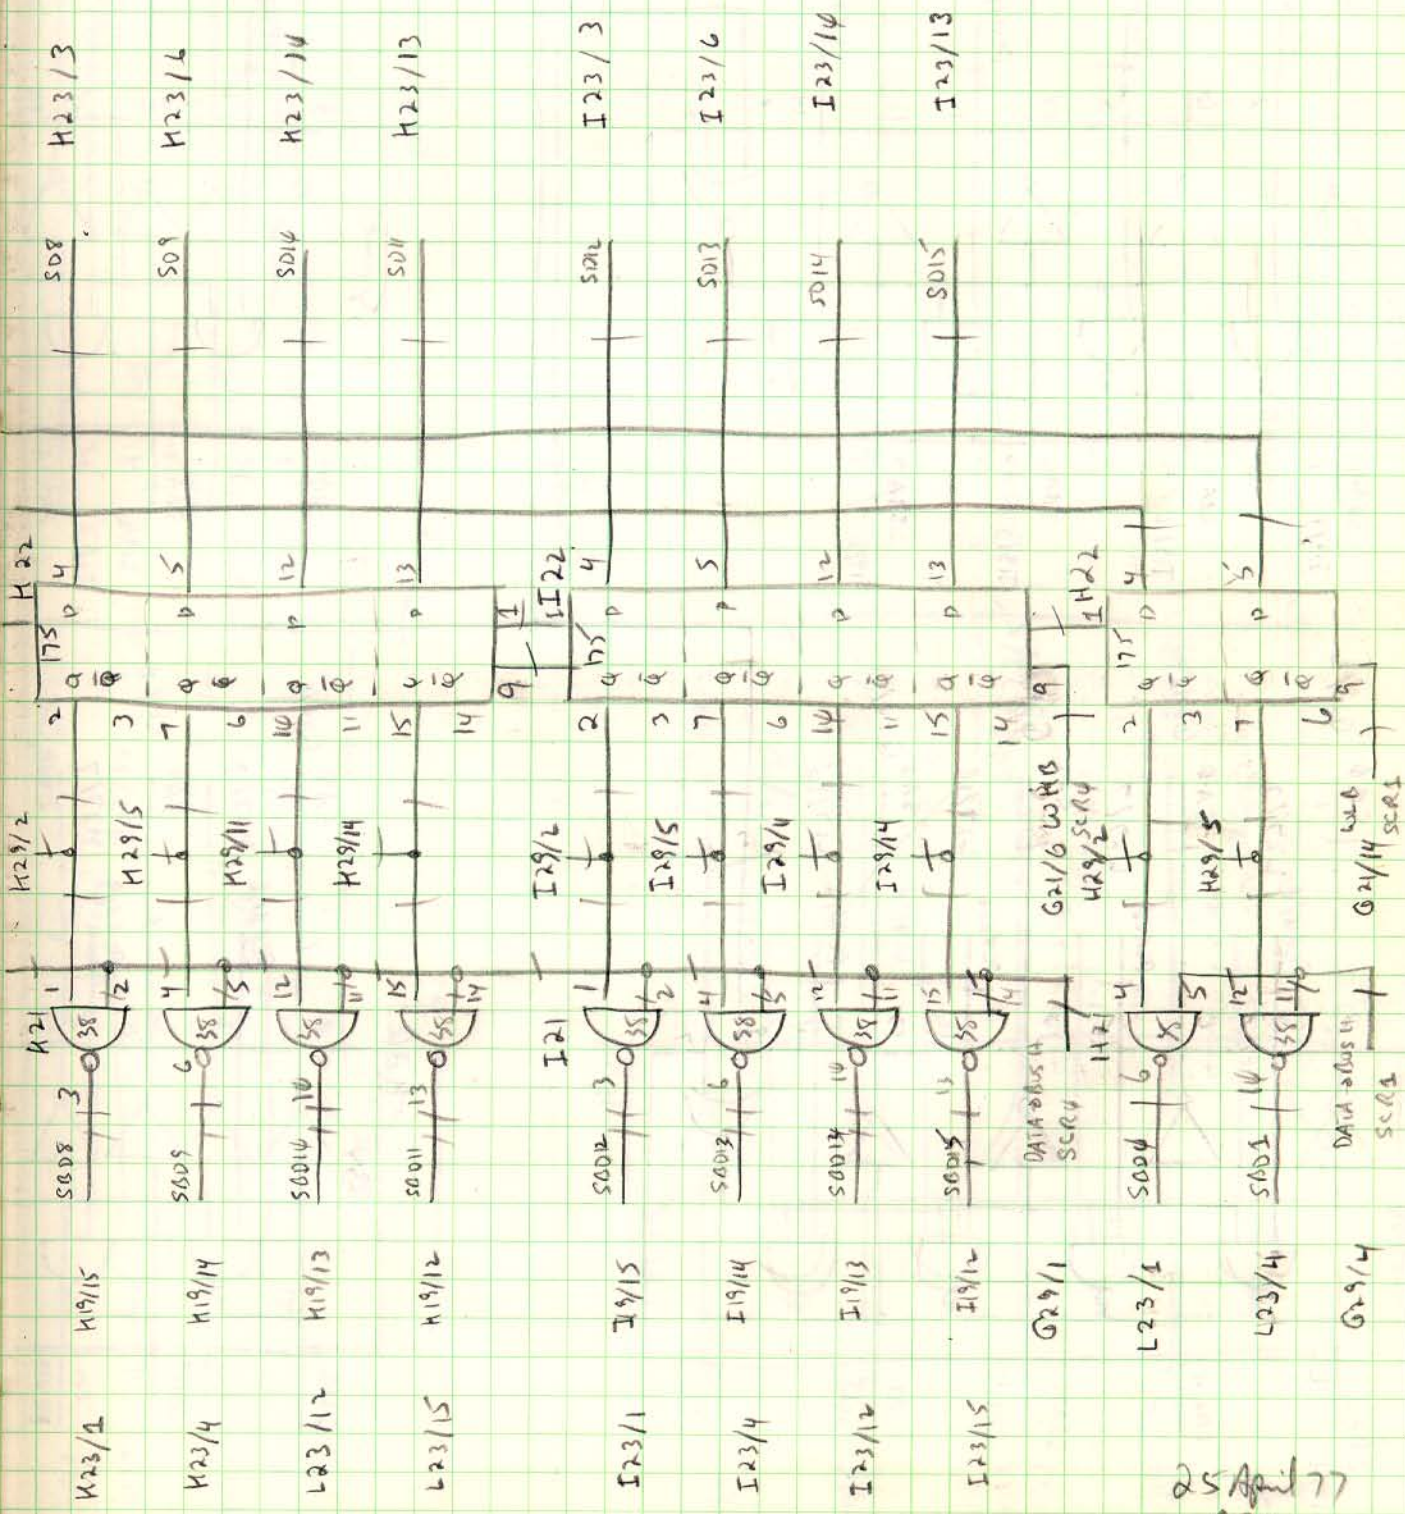 H23/3
H23/6
H23/14
H23/13
I23/3
I23/6
I23/14
I23/13
SD8
SD9
SD14
SD11
SD12
SD13
SD14
SD15
H22
4
5
12
13
I22
4
5
12
13
H22
4
5
175
D
D
D
D
1
1
175
D
D
D
D
1
175
D
D
Q
Q̄
Q
Q̄
Q
Q̄
Q
Q̄
9
Q
Q̄
Q
Q̄
Q
Q̄
Q
Q̄
9
Q
Q̄
Q
Q̄
9
2
3
7
6
14
11
15
14
2
3
7
6
14
11
15
14
2
3
7
6
H29/2
H29/5
H29/11
H29/14
I29/2
I29/5
I29/11
I29/14
G21/6 WHB
SCR4
H29/2
H29/5
G21/14 WLB
SCR1
H21
1
2
4
5
12
11
15
14
I21
1
2
4
5
12
11
15
14
H21
4
5
12
11
38
38
38
38
38
38
38
38
38
38
SBD8
3
SBD9
6
SBD14
14
SBD11
13
SBD12
3
SBD13
6
SBD14
14
SBD15
13
DATA→BUS H
SCR4
SBD4
6
SBD1
14
DATA→BUS H
SCR1
H19/15
H19/14
H19/13
H19/12
I19/15
I19/14
I19/13
I19/12
G29/1
L23/1
L23/4
G29/4
H23/1
H23/4
L23/12
L23/15
I23/1
I23/4
I23/12
I23/15
25 April 77